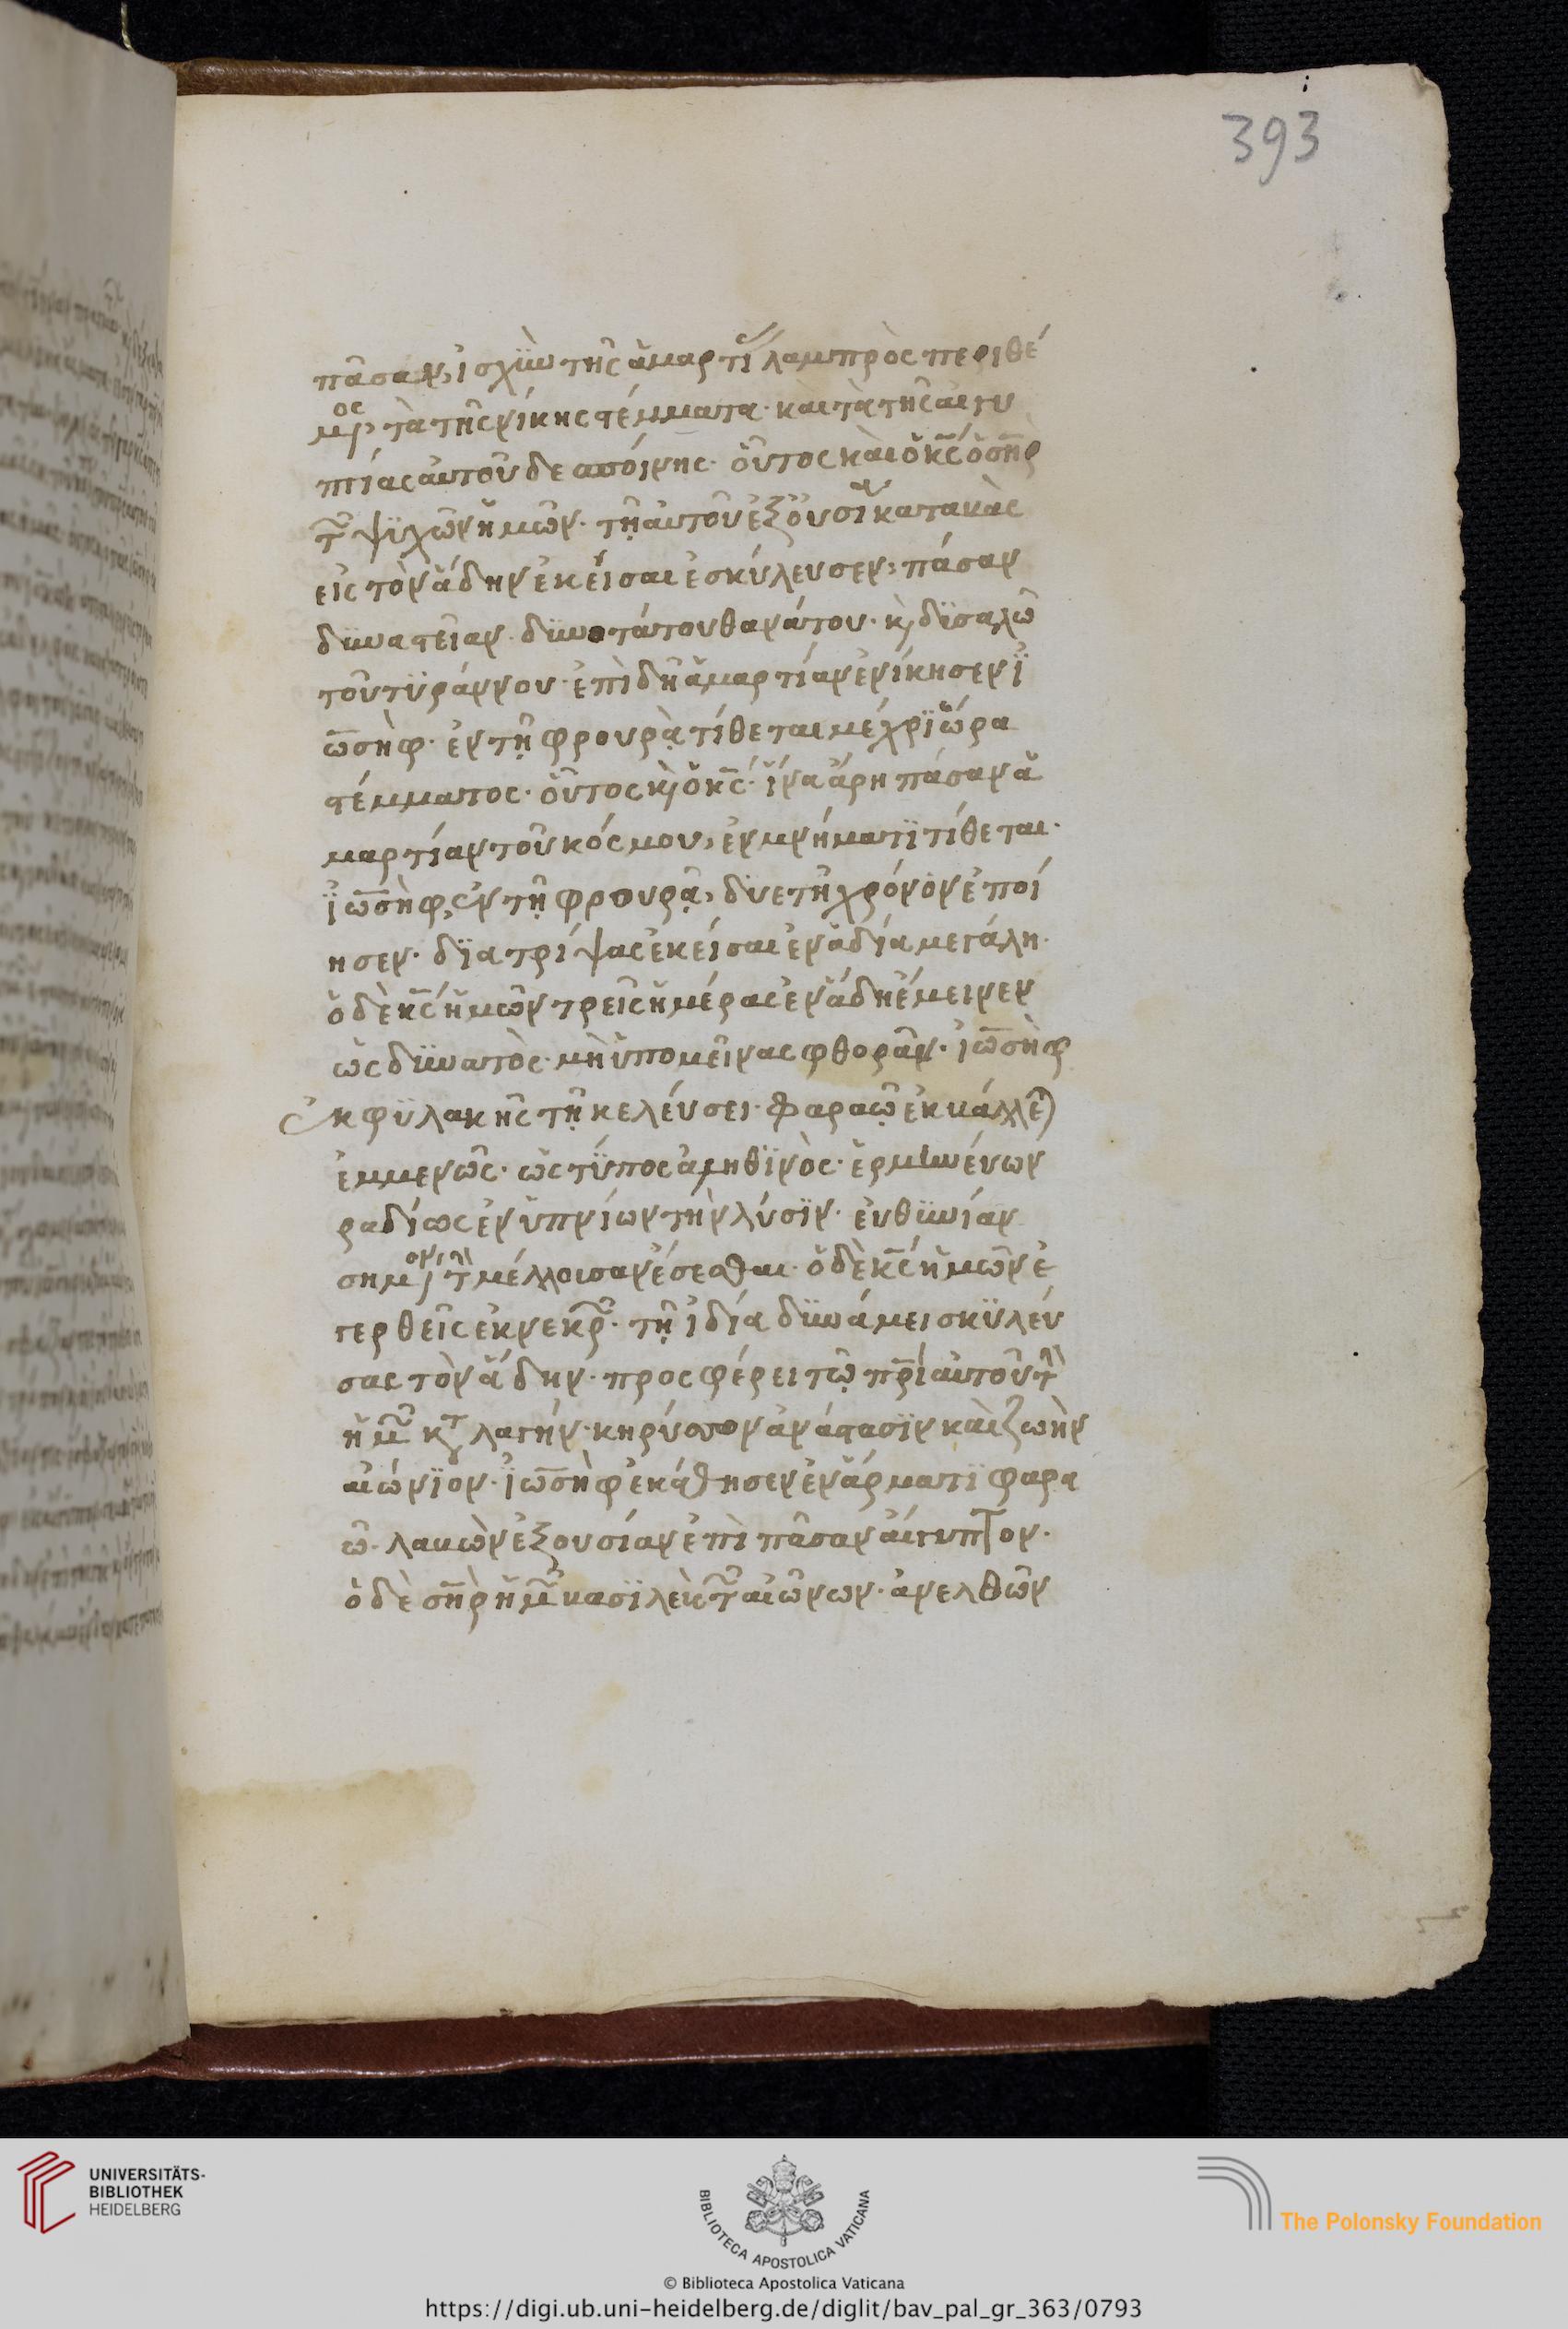 393
πᾶσαν, ἰσχὺν τῆς ἁμαρτί λαμπρὸς περιθέ
μενος τὰ τῆς νίκης στέμματα· καὶ τὰ τῆς αἰγυ
πτίας αὐτοῦ δεσποίνης· οὗτος καὶ ὁ κς́ ὁ σηρ
τῶν ψϋχῶν ἡμῶν· τῆ αὐτοῦ ἐξουσία καταβὰς
εἰς τὸν ἅδην ἐκεῖσαι ἐσκύλευσεν, πάσαν
δϋναστεῖαν δϋνοτάτου θανάτου· κὶ δϊσαλῶ
τοῦ τϋράννου· ἐπὶ δὴ ἁμαρτίαν ἐνίκησεν ἰ
ωσὴφ· ἐν τῆ φρουρᾶ τίθεται μέχρϊ ὥρα
στέμματος· οὗτος κὶ ὁ κς́· ἵνα ἄρη πάσαν ἁ
μαρτίαν τοῦ κόσμου, ἐν μνήματϊ τίθεται·
ϊωσὴφ, ἐν τῆ φρουρᾶ, δύε τῆ χρόνον ἐποί
ησεν· δϊατρίψας ἐκείσαι ἐν ἀδία μεγάλη·
ὁ δὲ κς́ ἡμῶν τρεῖς ἡμέρας ἐν ἅδη ἔμεινεν
ὡς δϋνατὸς· μὴ ὑπομεῖνας φθορᾶν· ἰωσὴφ
ἐκ φϋλακῆς τῆ κελεύσει· Φαραῶ ἐκβάλλε
ἐμμενῶς· ὡς τύπος ἀληθϊνὸς· ἑρμϊνένων
ραδίως ἐν ὑπνίων τὴν λύσϊν· εὐθϋνίαν
σημαίνον τὴν μέλλοισαν ἔσεσθαι· ὁ δὲ κς́ ἡμῶν ἐ
γερθεῖς ἐκ νεκρῶν· τῆ ἰδία δϋνάμει σκϋλεύ
σας τὸν ἅδην· προσφέρει τῶ πρὶ αὐτοῦ τὴν
ἡμῶν λαγήν· κηρύσσον ἀνάστασϊν καὶ ζωὴν
αἰώνϊον· ϊωσὴφ ἐκάθησεν ἐν ἅρματϊ φαρα
ῶ· λαβὼν ἐξουσίαν ἐπὶ πᾶσαν αἴγυπτον·
ὁ δὲ σηρ ἡμῶν βασϊλεὺς τῶν αἰῶνων· ἀνελθῶν
UNIVERSITÄTS-
BIBLIOTHEK
HEIDELBERG
BIBLIOTECA APOSTOLICA VATICANA
The Polonsky Foundation
© Biblioteca Apostolica Vaticana
https://digi.ub.uni-heidelberg.de/diglit/bav_pal_gr_363/0793